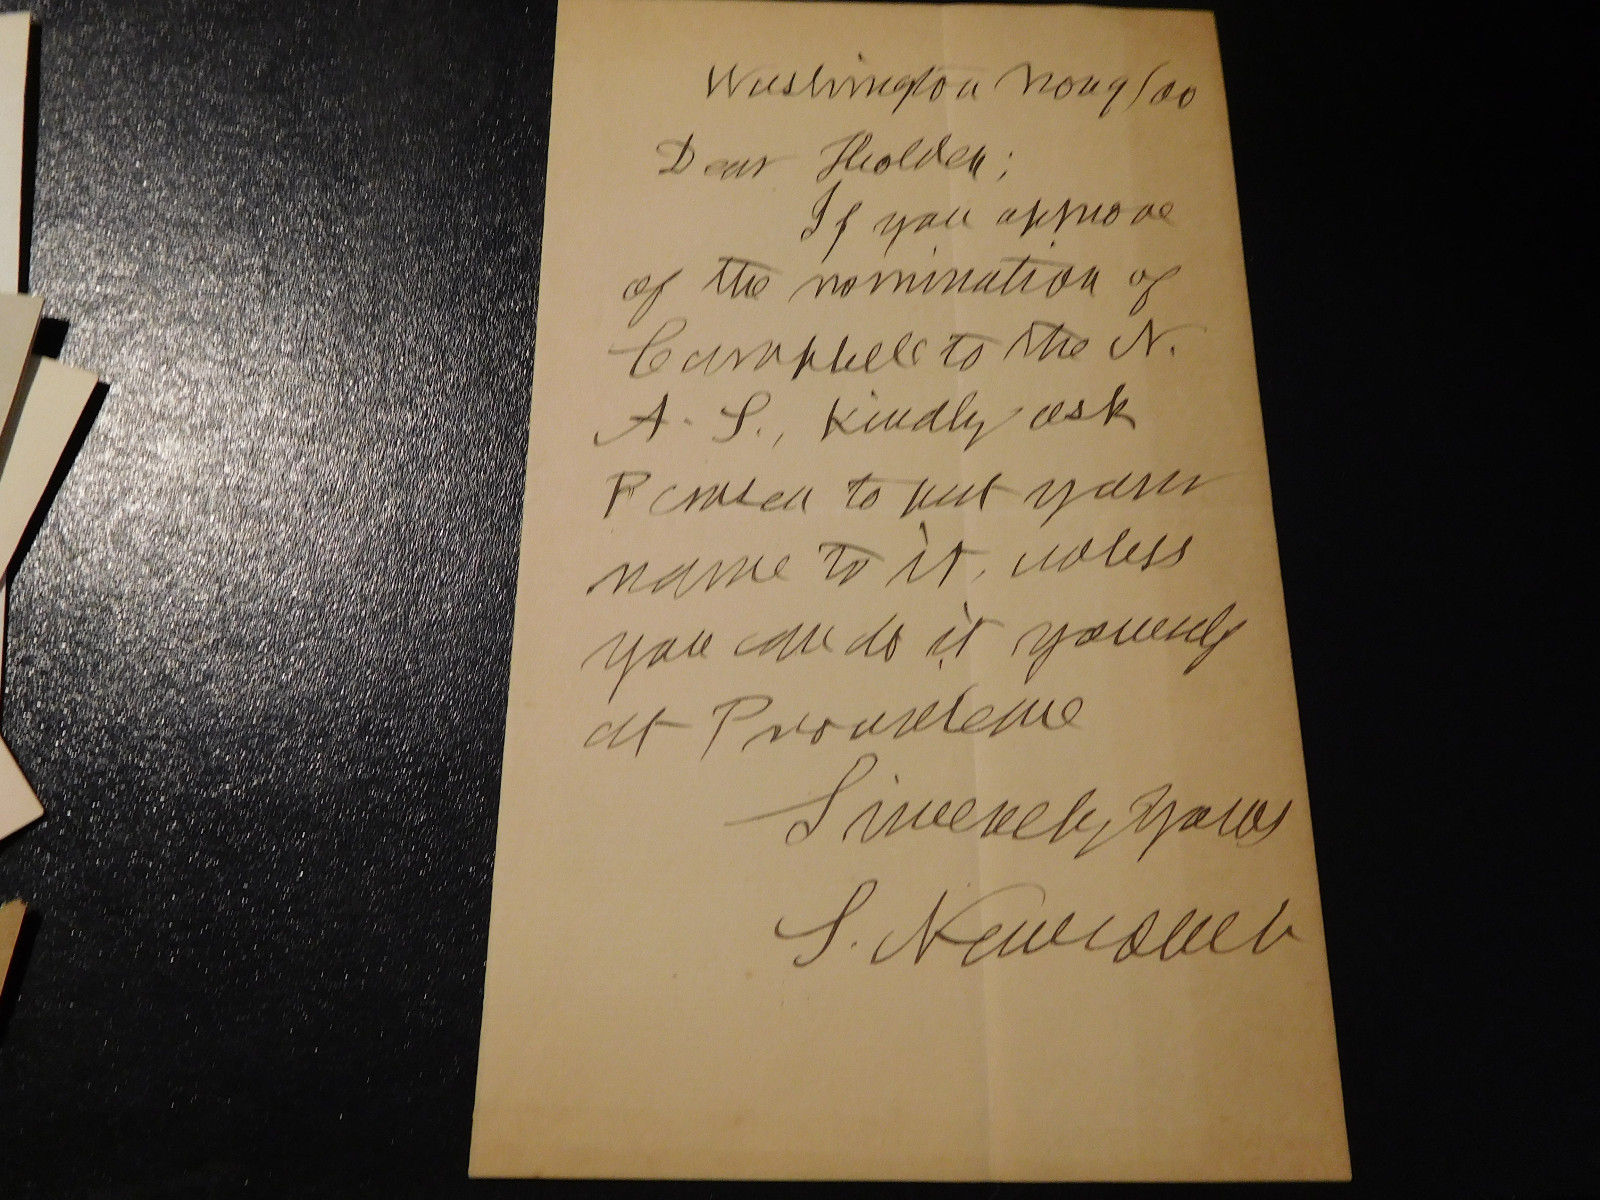 Washington Nov 9/00
Dear Holden;
If you approve
of the nomination of
Campbell to the N.
A. S., kindly ask
to put your
name to it, unless
you can do it yourself
at Providence
Sincerely Yours
S. Newcomb